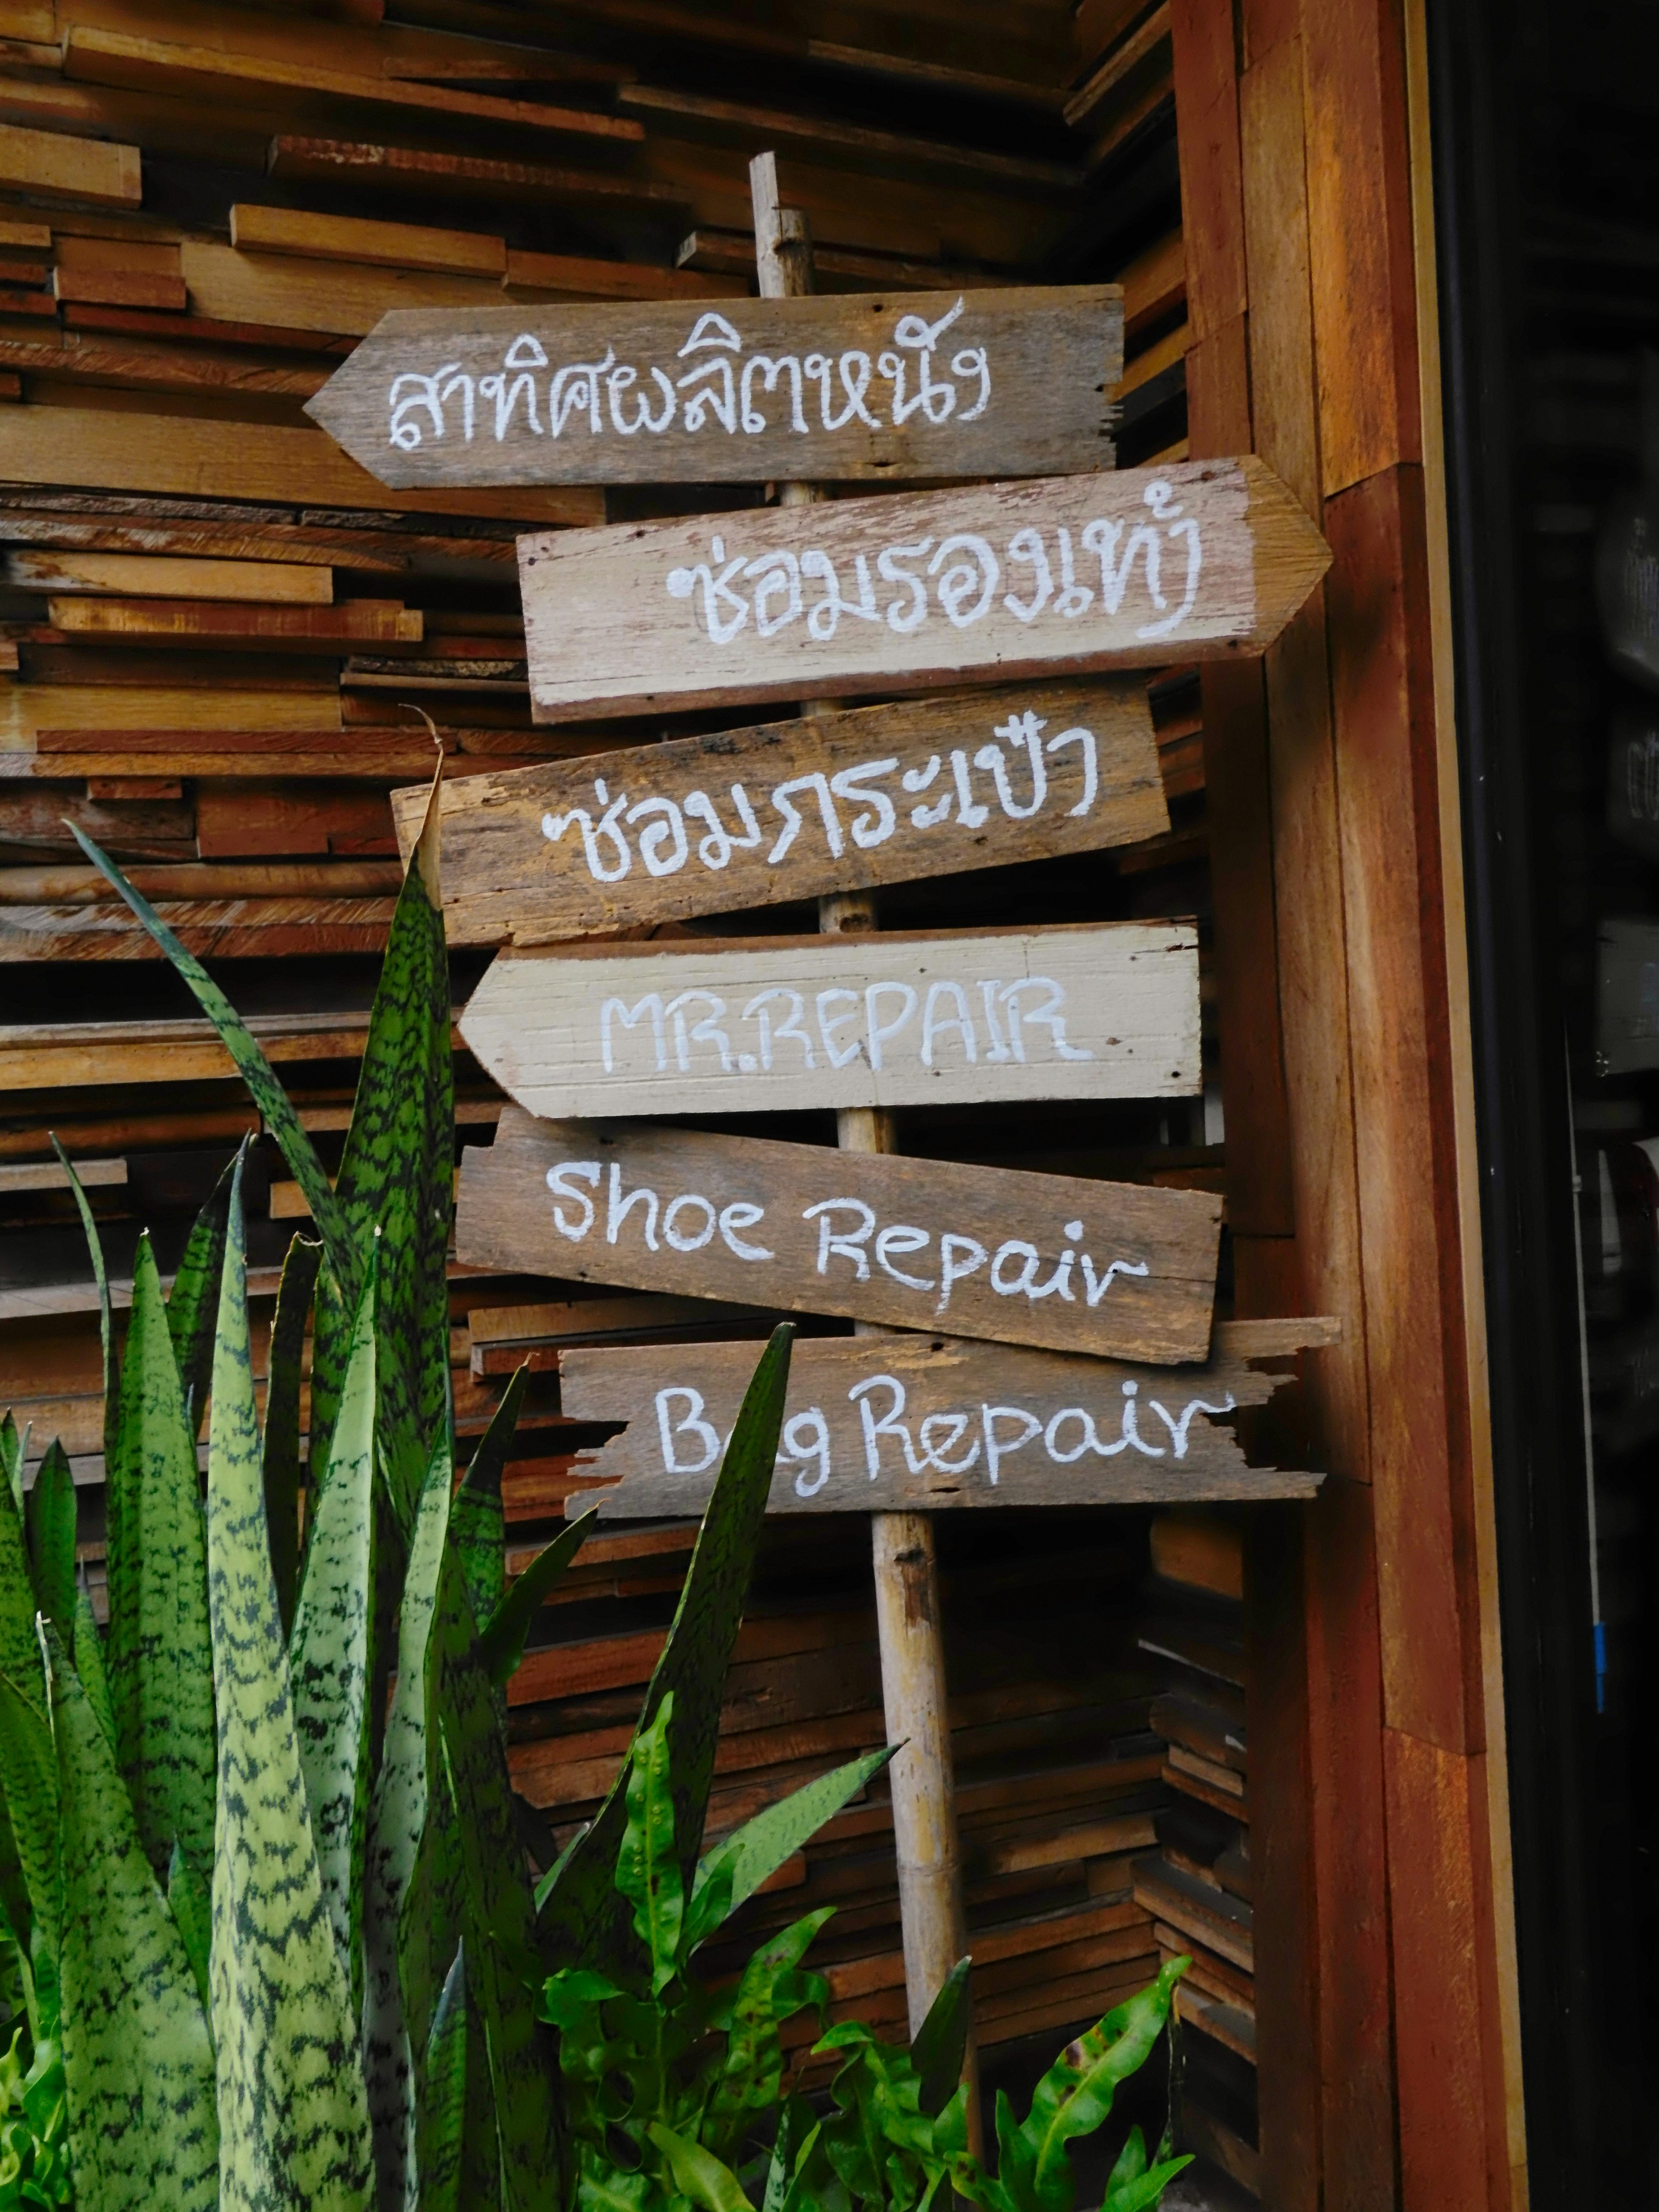 สาทิศผลิตหนัง
ซ่อมรองเท้า
ซ่อมกระเป๋า
MR.REPAIR
Shoe Repair
Bag Repair